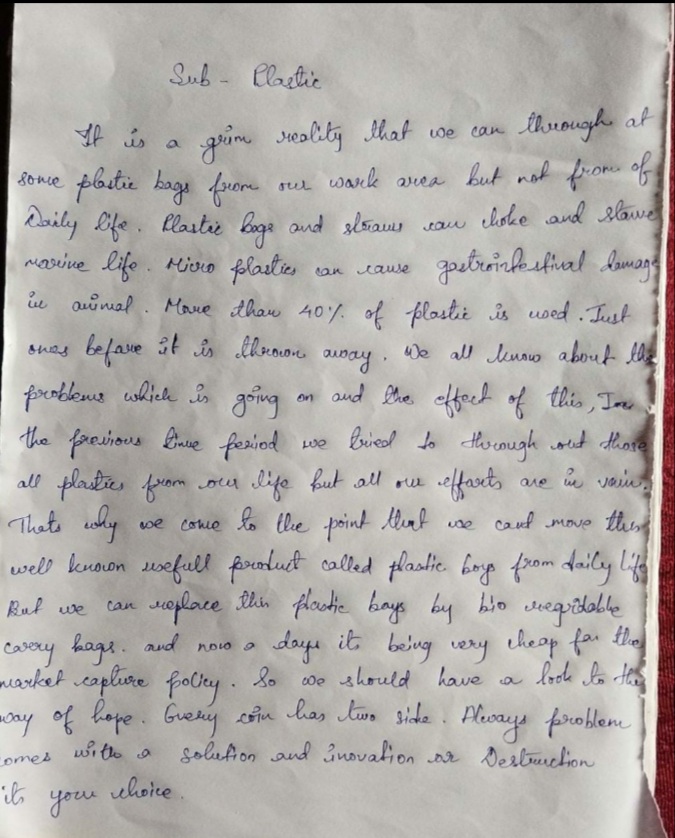 Sub - Plastic
It is a grim reality that we can through at
some plastic bags from our work area but not from of
Daily life. Plastic bags and straws can choke and starve
marine life. Micro plastics can cause gastrointestinal damage
in animal. More than 40% of plastic is used. Just
ones before it is thrown away. We all know about the
problems which is going on and the effect of this, In
the previous time period we tried to through out those
all plastics from our life but all our efforts are in vain.
Thats why we come to the point that we cant move this
well known usefull product called plastic bags from daily life
But we can replace this plastic bags by bio
carry bags. and now a days its being very cheap for the
market capture policy. So we should have a look to the
way of hope. Every coin has two side. Always problem
comes with a solution and inovation or Destruction
its your choice.